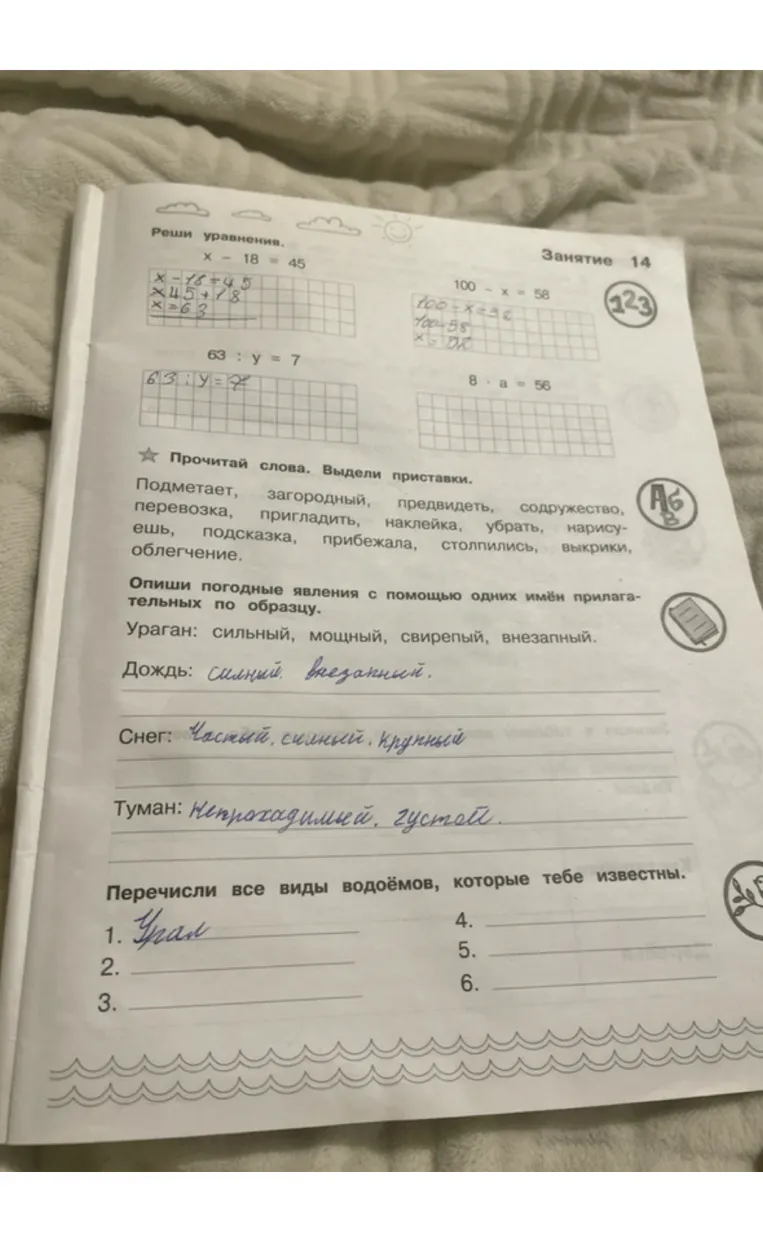 Реши уравнения.
Занятие 14
x - 18 = 45
100 - x = 58
123
x - 18 = 45
x 45 + 18
x = 63
100 - x = 58
100-58
x =
63 : y = 7
8 · a = 56
63 : y = 7
Прочитай слова. Выдели приставки.
Подметает, загородный, предвидеть, содружество,
перевозка, пригладить, наклейка, убрать, нарису-
ешь, подсказка, прибежала, столпились, выкрики,
облегчение.
АБВ
Опиши погодные явления с помощью одних имён прилага-
тельных по образцу.
Ураган: сильный, мощный, свирепый, внезапный.
Дождь: силный. внезапный.
Снег: Частый, силный, крупный
Туман: Непрохадимый, густой.
Перечисли все виды водоёмов, которые тебе известны.
1. Урал
2.
3.
4.
5.
6.